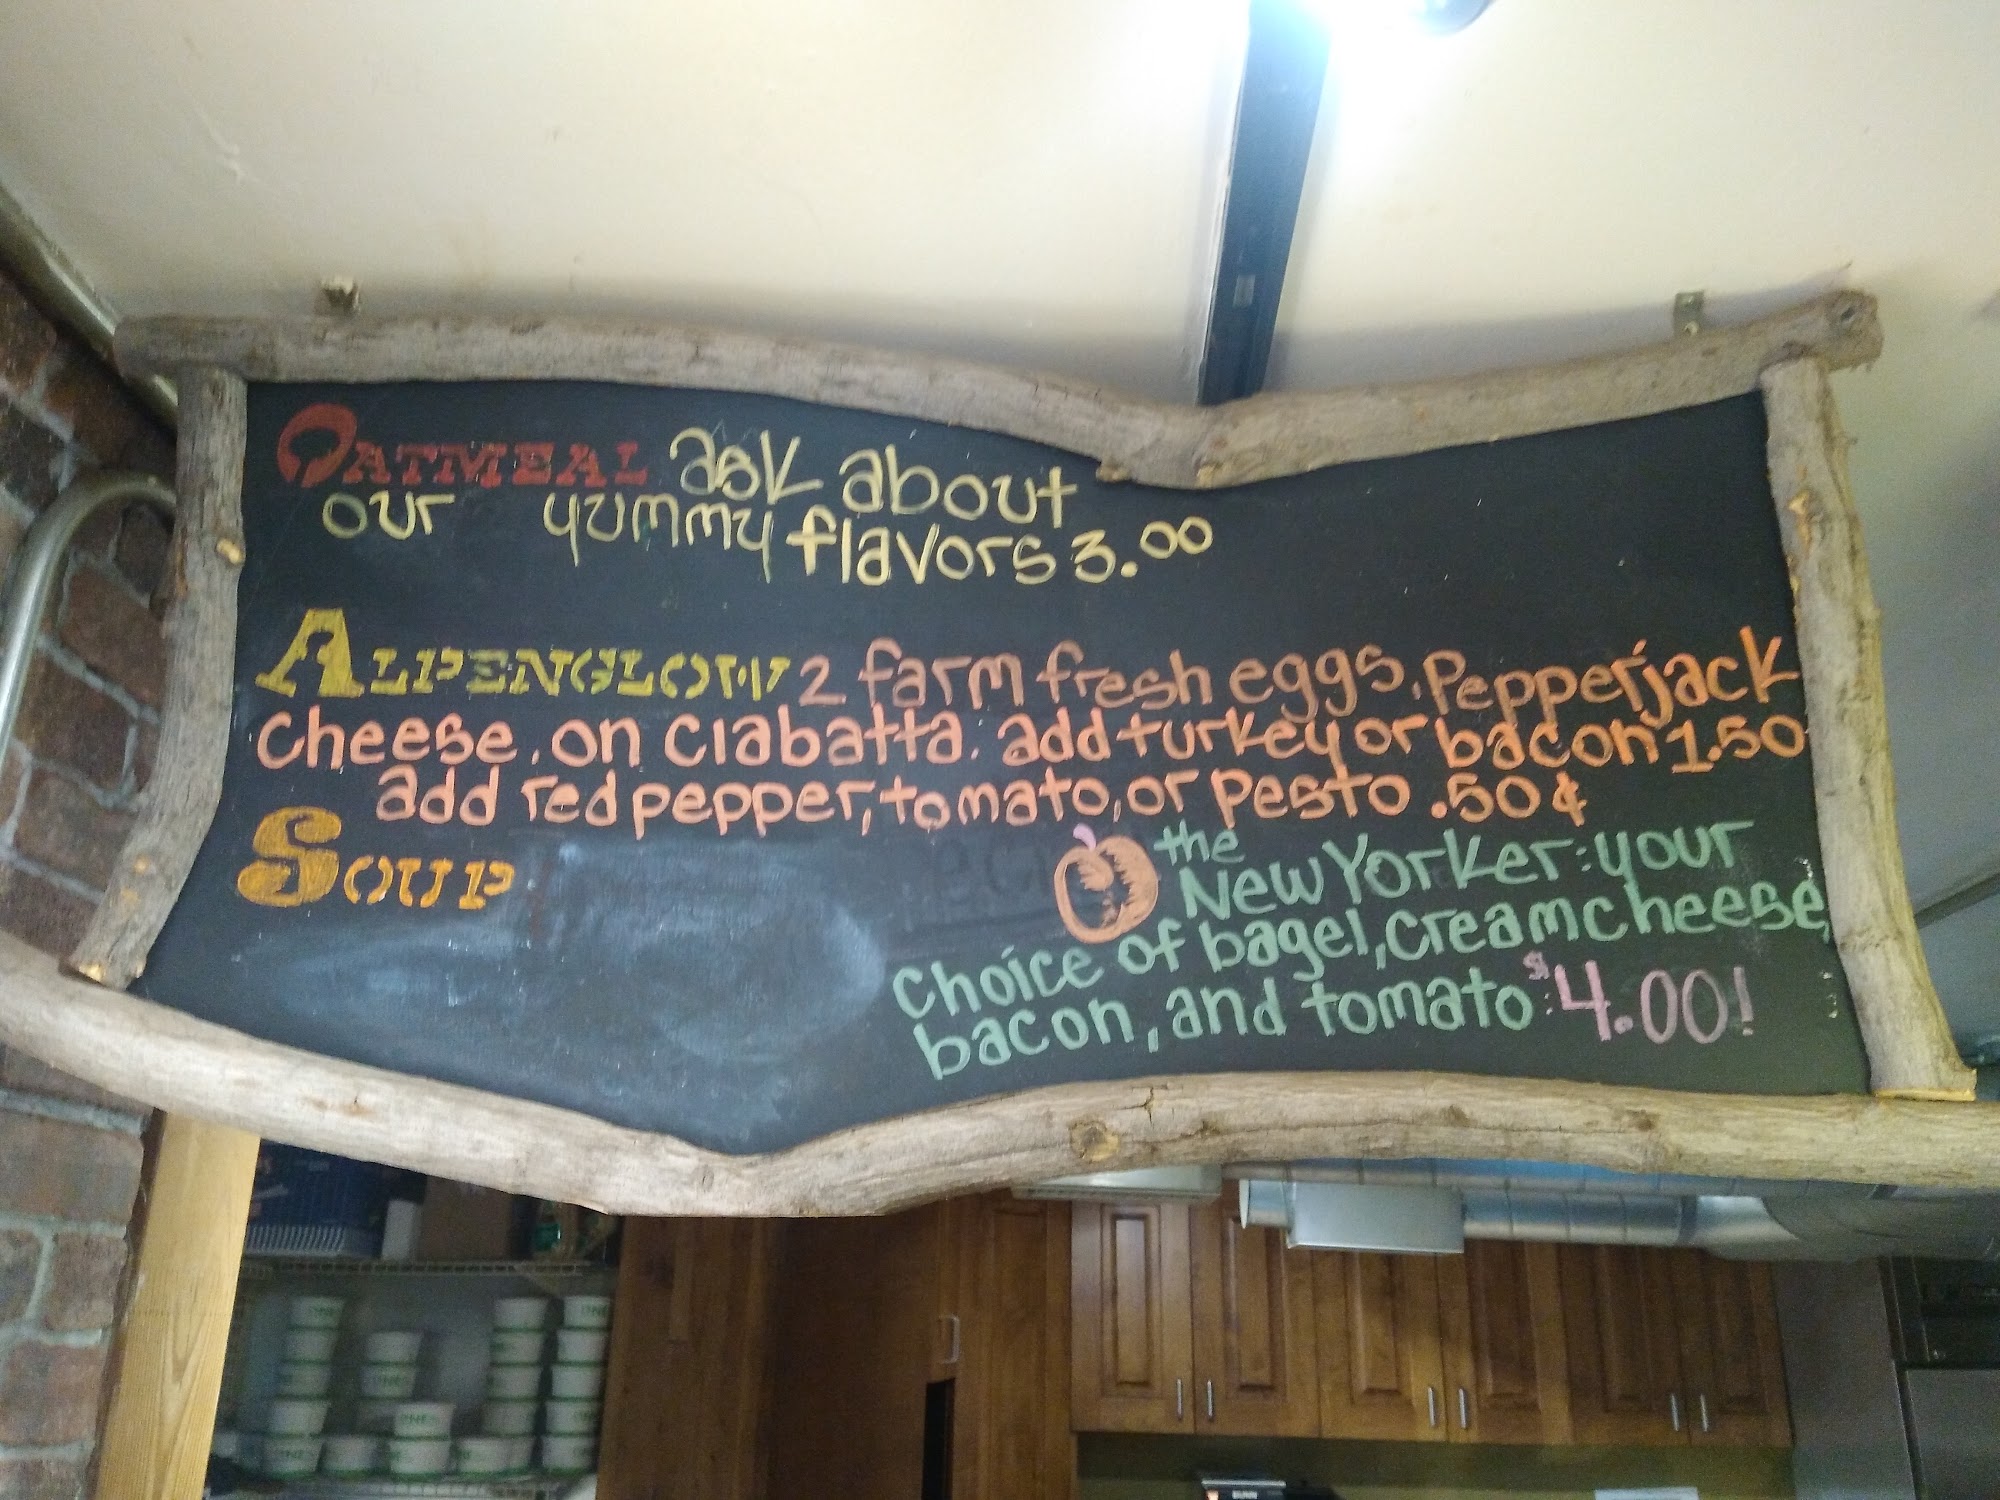 OATMEAL ask about
our yummy flavors 3.00
ALPENGLOW 2 farm fresh eggs. Pepperjack
cheese. on ciabatta. add turkey or bacon 1.50
add red pepper, tomato, or pesto .50¢
SOUP
the
New Yorker: your
choice of bagel, cream cheese,
bacon, and tomato: $4.00!